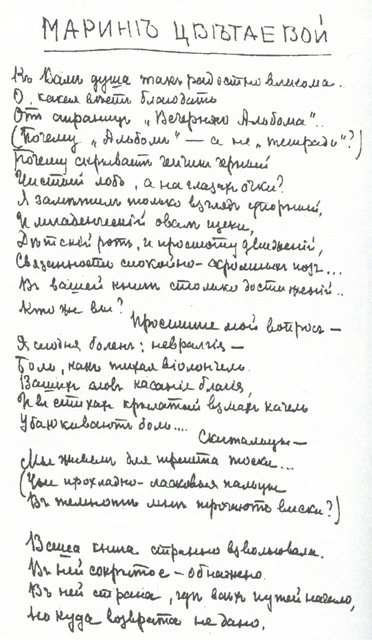 МАРИНѢ ЦВѢТАЕВОЙ
Къ Вамъ душа такъ радостно влекома..
О, какая вѣетъ благодать
Отъ страницъ „Вечерняго Альбома"..
(Почему „Альбомъ" — а не „тетрадь"?)
Почему скрываетъ чепчикъ черный
Чистый лобъ, а на глазахъ очки?
Я замѣтилъ только взглядъ упорный,
И младенческій овалъ щеки,
Дѣтскій ротъ, и простоту движеній,
Связанность спокойно-скромныхъ позъ...
Въ вашей книгѣ столько достиженій..
Кто же вы?
Простите мой вопросъ —
Я сегодня боленъ: невралгія —
Боль, какъ тихая віолончель.
Вашихъ словъ касанія благія,
И въ стихахъ крылатый взмахъ качель
Убаюкиваютъ боль....
Скитальцы —
Мы живемъ для трепета тоски...
(Чьи прохладно-ласковые пальцы
Въ темнотѣ мнѣ трогаютъ виски?)
Ваша книга странно взволновала.
Въ ней сокрытое — обнажено.
Въ ней страна, гдѣ всѣхъ путей начало,
Но куда возврата не дано.